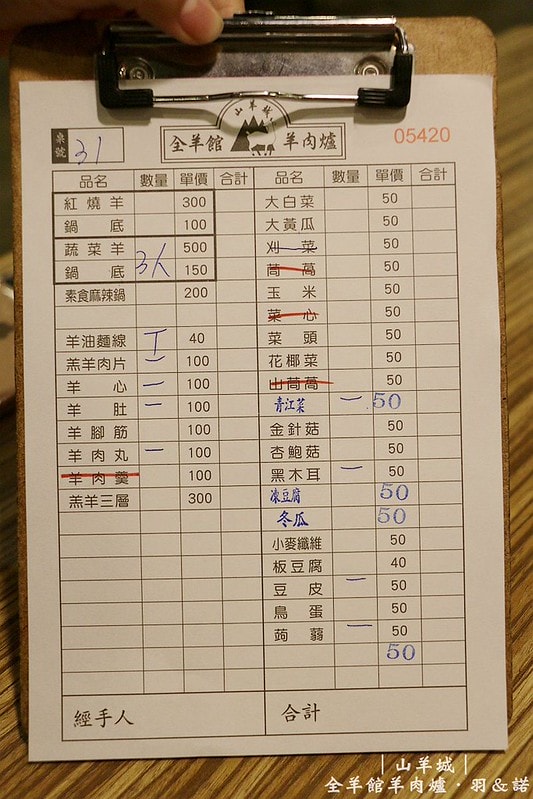 山羊城
全羊館 羊肉爐
05420
桌號 31
品名 數量 單價 合計
紅燒羊 300
鍋底 100
蔬菜羊 500
鍋底 3人 150
素食麻辣鍋 200
羊油麵線 40
羔羊肉片 一 100
羊心 一 100
羊肚 一 100
羊腳筋 100
羊肉丸 一 100
羊肉羹 100
羔羊三層 300
經手人
品名 數量 單價 合計
大白菜 50
大黃瓜 50
刈菜 50
茼蒿 50
玉米 50
菜心 50
菜頭 50
花椰菜 50
山茼蒿 50
青江菜 一 50
金針菇 50
杏鮑菇 50
黑木耳 一 50
凍豆腐 50
冬瓜 50
小麥纖維 50
板豆腐 40
豆皮 一 50
鳥蛋 50
蒟蒻 一 50
50
合計
|山羊城|
全羊館羊肉爐·羽&諾